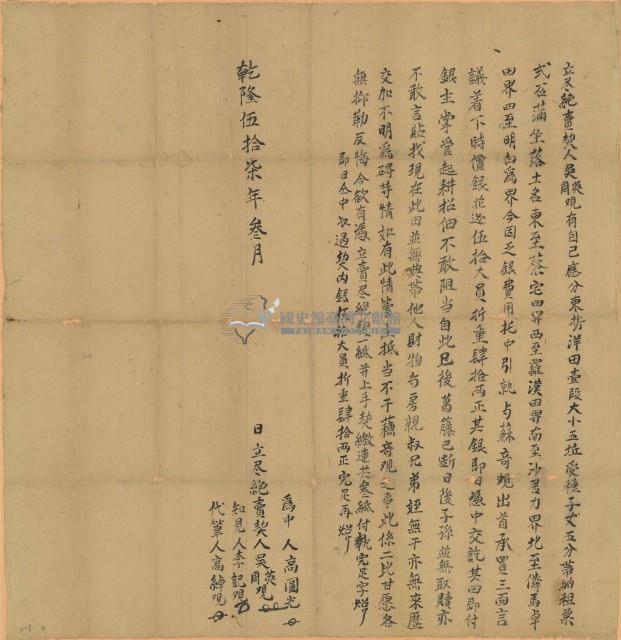 立尽絶賣契人吳英周观有自己應分東勢洋田壹段大小五坵受種子弍分帶納租粟
弍石滿坐落土名東至蔡宅田界西至羅漢田界南至沙善力界北至僯馬卓
田界四至明白為界今因乏銀費用托中引就与蘇奇观出首承買三面言
議着下時價銀花边伍拾大員折重肆拾两正其銀即日憑中交訖其田即付
銀主掌管起耕招佃不敢阻当自此已後葛藤已断日後子孫並無取贖亦
不敢言貼找現在此田並無典帶他人財物与房親叔兄弟姪無干亦無來歷
交加不明為碍等情如有此情賣主抵当不干蘓奇观之事此係二比甘愿各
無抑勒反悔今欲有憑立賣尽絶契一紙并上手契繳連共叁紙付執完足字炤
即日仝中收過契内銀伍拾大員折重肆拾两正完足再炤
乾隆伍拾柒年叁月 日立尽絶賣契人吳英周观
為中人高圓光
知見人李記观
代筆人高綽观
國史館臺灣文獻館
TAIWAN HISTORICA